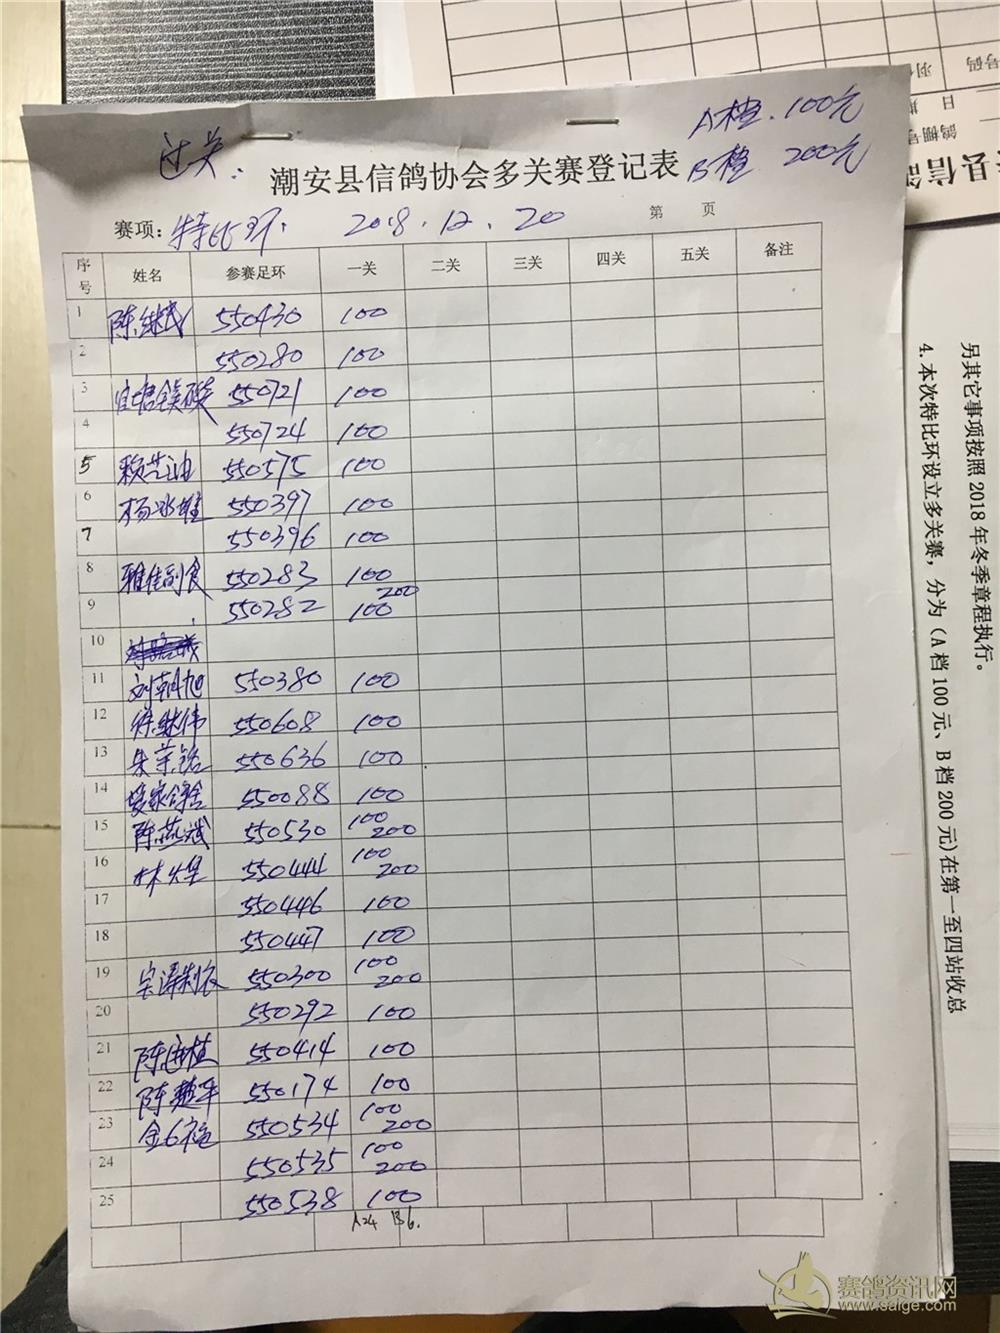 过关：
A档.100元
潮安县信鸽协会多关赛登记表
B档 200元
赛项：特比环. 2018.12.20 第 页
序号 姓名 参赛足环 一关 二关 三关 四关 五关 备注
1 陈继武 550430 100
2 550280 100
3 550721 100
4 550724 100
5 550575 100
6 杨冰雄 550397 100
7 550396 100
8 雅佳副食 550283 100
9 550282 100 200
10
11 刘朝旭 550380 100
12 徐继伟 550608 100
13 朱荣铭 550636 100
14 爱家鸽舍 550088 100
15 陈燕斌 550530 100 200
16 林煌 550444 100 200
17 550446 100
18 550447 100
19 宝涛制衣 550300 100 200
20 550292 100
21 550414 100
22 陈楚平 550174 100
23 金6福 550534 100 200
24 550535 100 200
25 550538 100
A24 B6.
另其它事项按照2018年冬季章程执行。
4.本次特比环设立多关赛，分为（A档100元、B档200元)在第一至四站收总
号码
羽
日
鸽棚号
县信鸽
赛鸽资讯网
www.saige.com